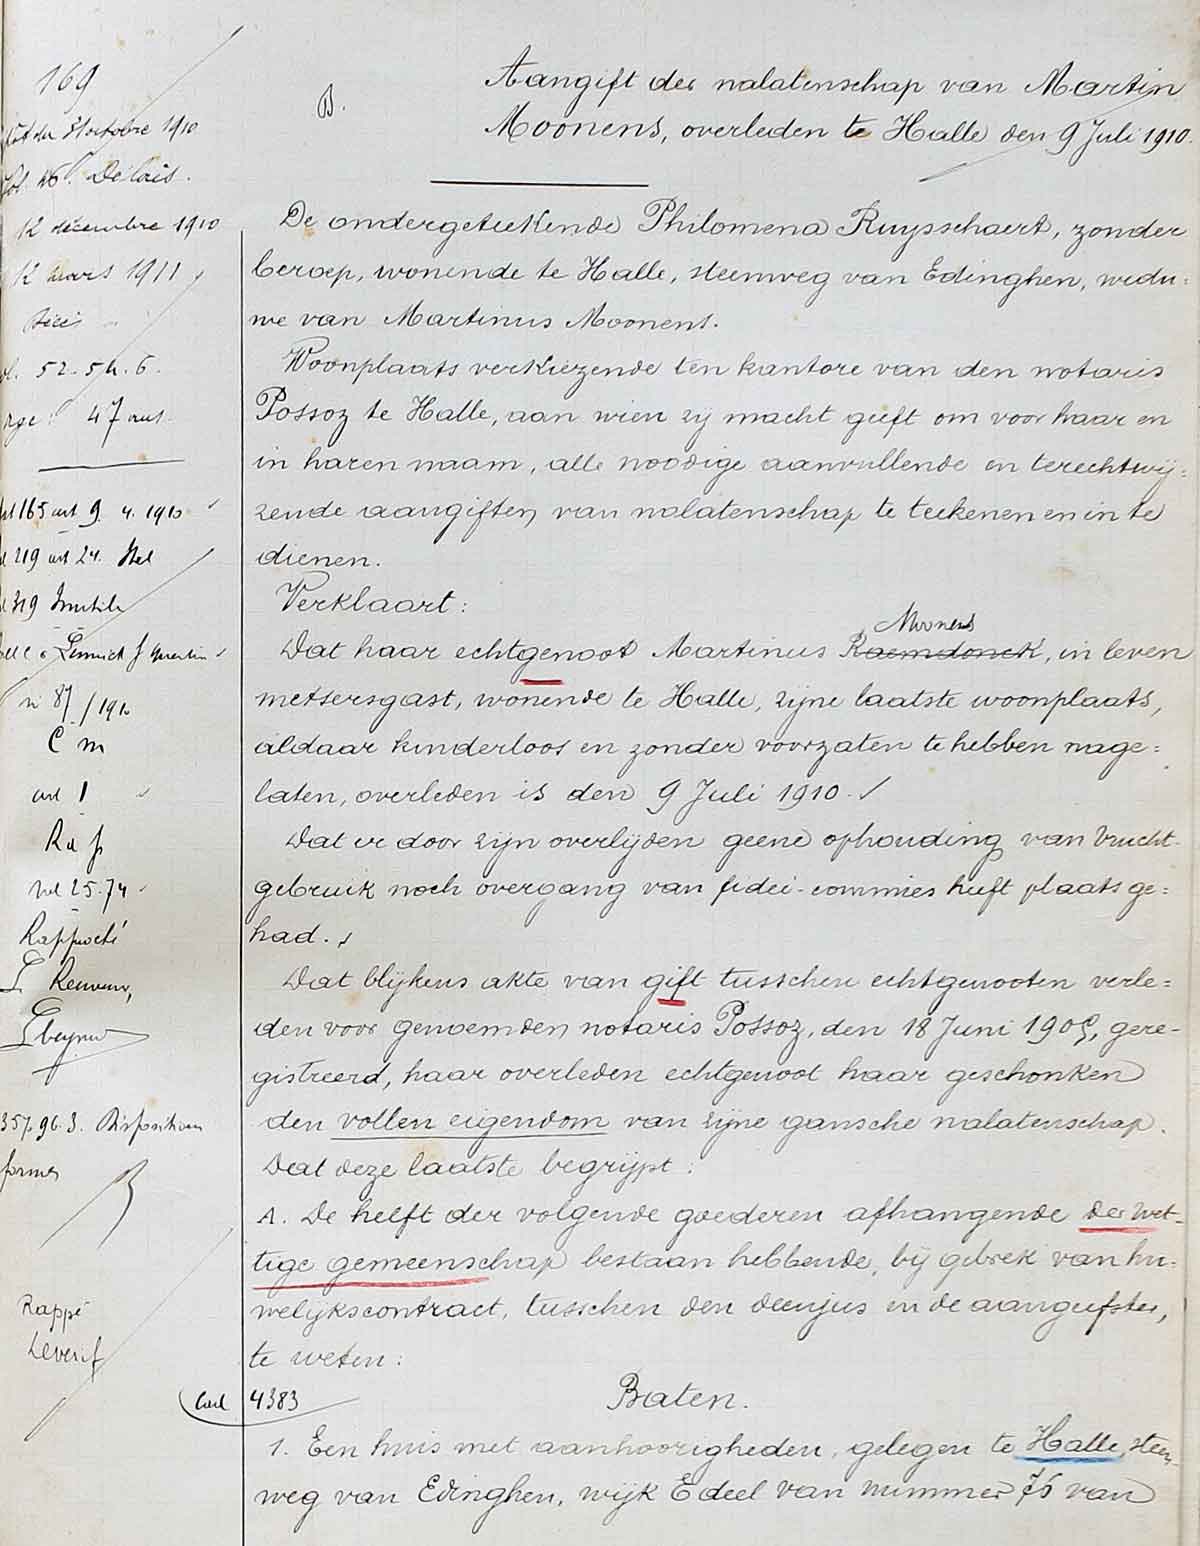 169
B.
Aangift der nalatenschap van Martin
Moonens, overleden te Halle den 9 Juli 1910.
octobre 1910
Délais.
12 décembre 1910
12 mars 1911
52.54.6.
47 ans
De ondergeteekende Philomena Ruysschaert, zonder
beroep, wonende te Halle, steenweg van Edinghen, wedu-
we van Martinus Moonens.
Woonplaats verkiezende ten kantore van den notaris
Possoz te Halle, aan wien zij macht geeft om voor haar en
in haren naam, alle noodige aanvullende en terechtwij-
zende aangiften van nalatenschap te teekenen en in te
dienen.
Verklaart:
Moonens
Dat haar echtgenoot Martinus Raemdonck, in leven
metsersgast, wonende te Halle, zijne laatste woonplaats,
aldaar kinderloos en zonder voorzaten te hebben nage=
laten, overleden is den 9 Juli 1910.
Dat er door zijn overlijden geene ophouding van vrucht-
gebruik noch overgang van fidei-commies heeft plaats ge=
had.
Dat blijkens akte van gift tusschen echtgenooten verle=
den voor genoemden notaris Possoz, den 18 Juni 1909, gere-
gistreerd, haar overleden echtgenoot haar geschonken
den vollen eigendom van zijne gansche nalatenschap.
Dat deze laatste begrijpt:
A. De helft der volgende goederen afhangende der wet-
tige gemeenschap bestaan hebbende, bij gebrek van hu-
welijkscontract, tusschen den decujus en de aangeefster,
te weten:
165 art 9. 4. 1910
219 art 24.
319
n 87/1910
art 1
vol 25.74
Rapproché
357.96.3. Dispositions
Rappé
4383
Baten.
1. Een huis met aanhoorigheden, gelegen te Halle, steen-
weg van Edinghen, wijk E deel van nummer 75 van